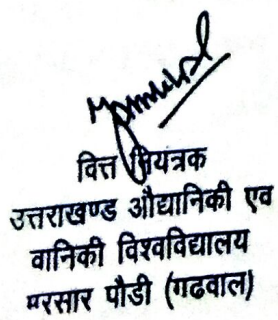 वित्त नियंत्रक
उत्तराखण्ड औद्यानिकी एव
वानिकी विश्वविद्यालय
भरसार पौडी (गढवाल)